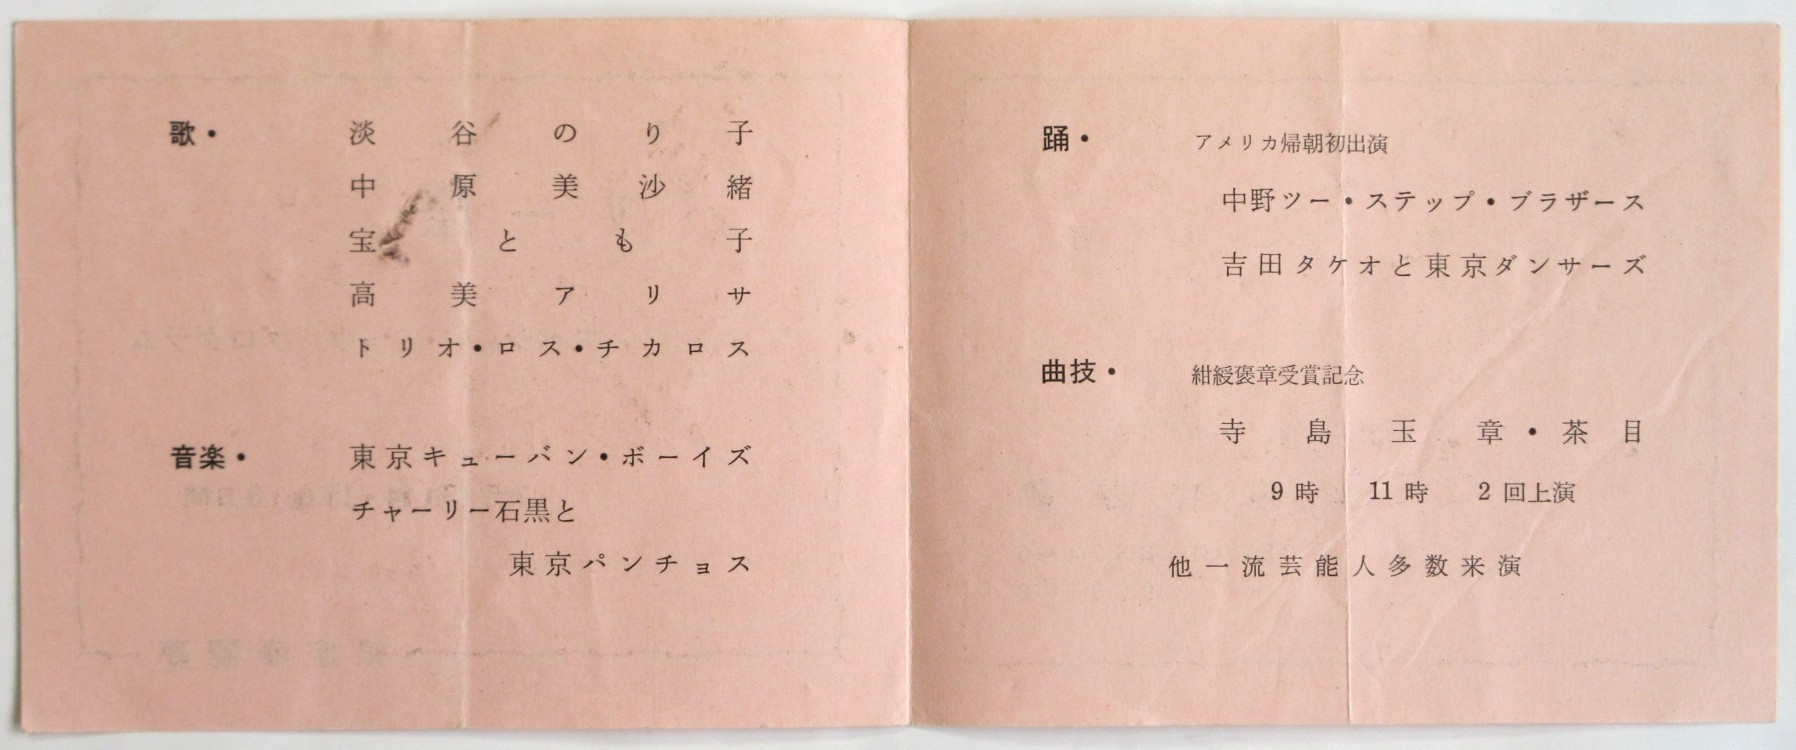 歌・ 淡谷のり子
中原美沙緒
宝とも子
高美アリサ
トリオ・ロス・チカロス
音楽・ 東京キューバン・ボーイズ
チャーリー石黒と
東京パンチョス
踊・ アメリカ帰朝初出演
中野ツー・ステップ・ブラザース
吉田タケオと東京ダンサーズ
曲技・ 紺綬褒章受賞記念
寺島玉章・茶目
9時 11時 2回上演
他一流芸能人多数来演